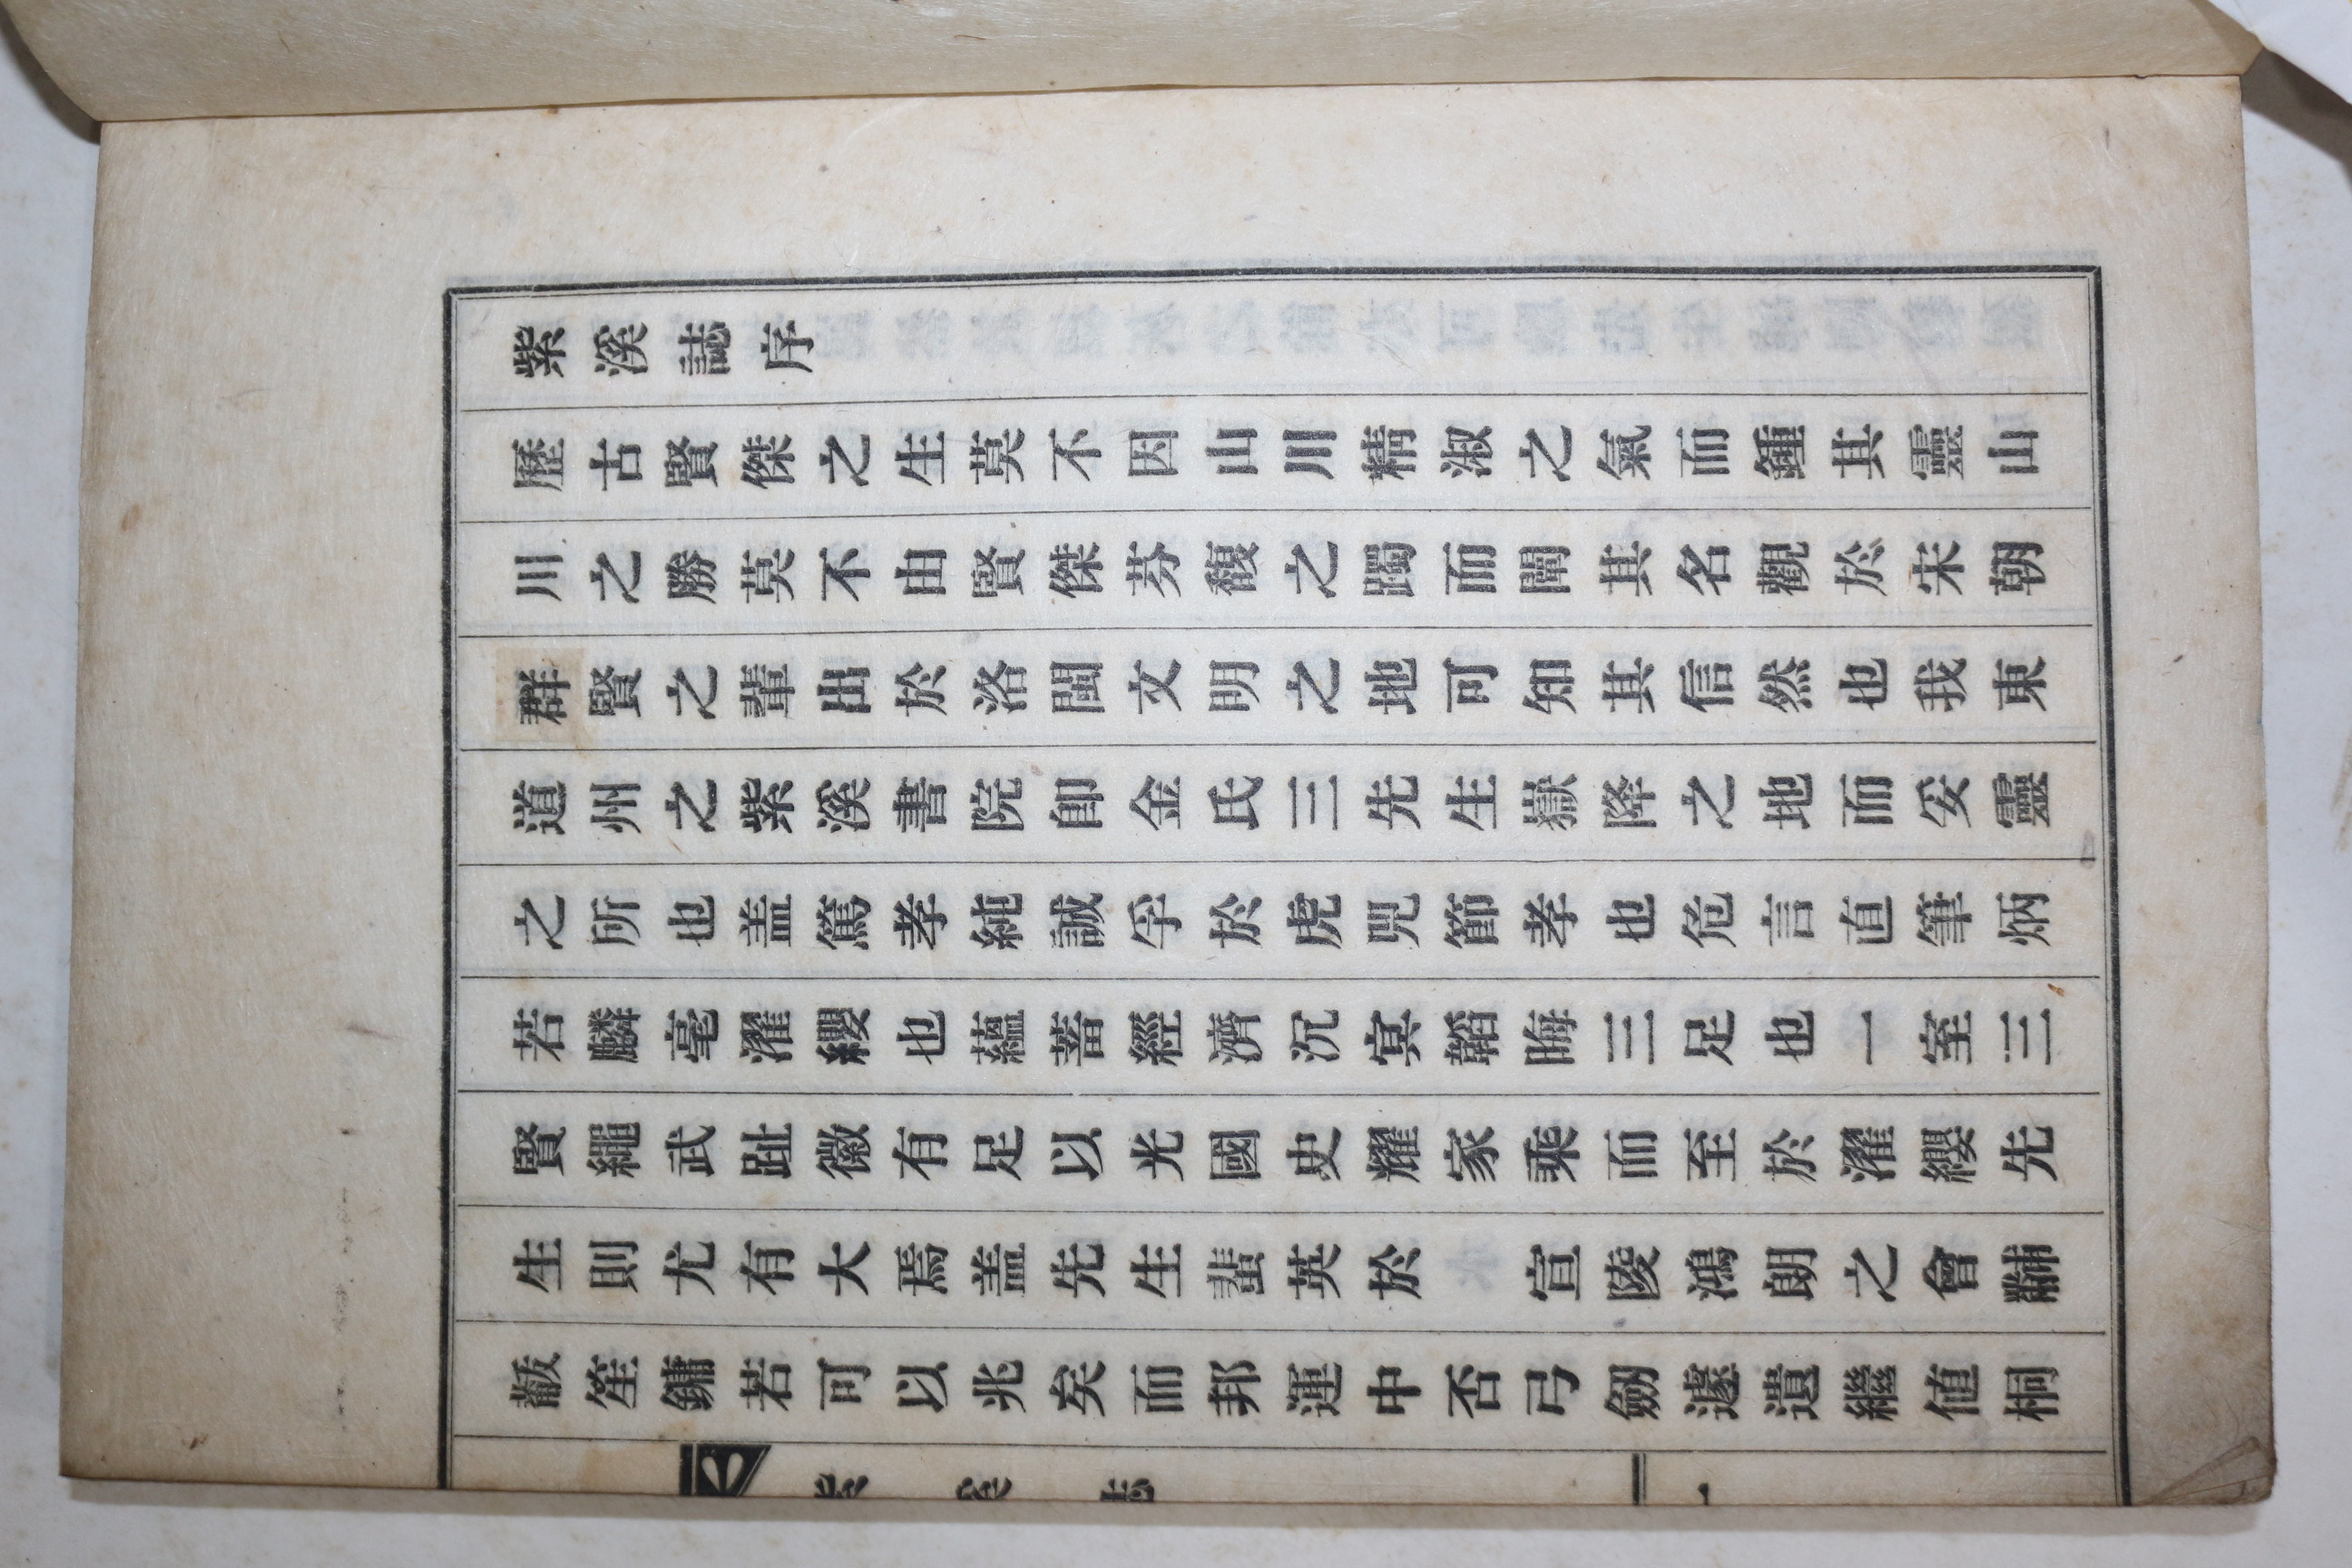 紫溪誌序
歷古賢傑之生莫不因山川精淑之氣而鍾其靈山
川之勝莫不由賢傑芬馥之躅而闡其名觀於宋朝
群賢之輩出於洛閩文明之地可知其信然也我東
道州之紫溪書院卽金氏三先生嶽降之地而妥靈
之所也盖篤孝純誠孚於虎兕節孝也危言直筆炳
若麟毫濯纓也蘊蓄經濟沉冥韜晦三足也一室三
賢繩武趾徽有足以光國史耀家乘而至於濯纓先
生則尤有大焉盖先生蜚英於 宣陵鴻朗之會黼
黻笙鏞若可以兆矣而邦運中否弓劒遽遺繼値桐
紫溪誌